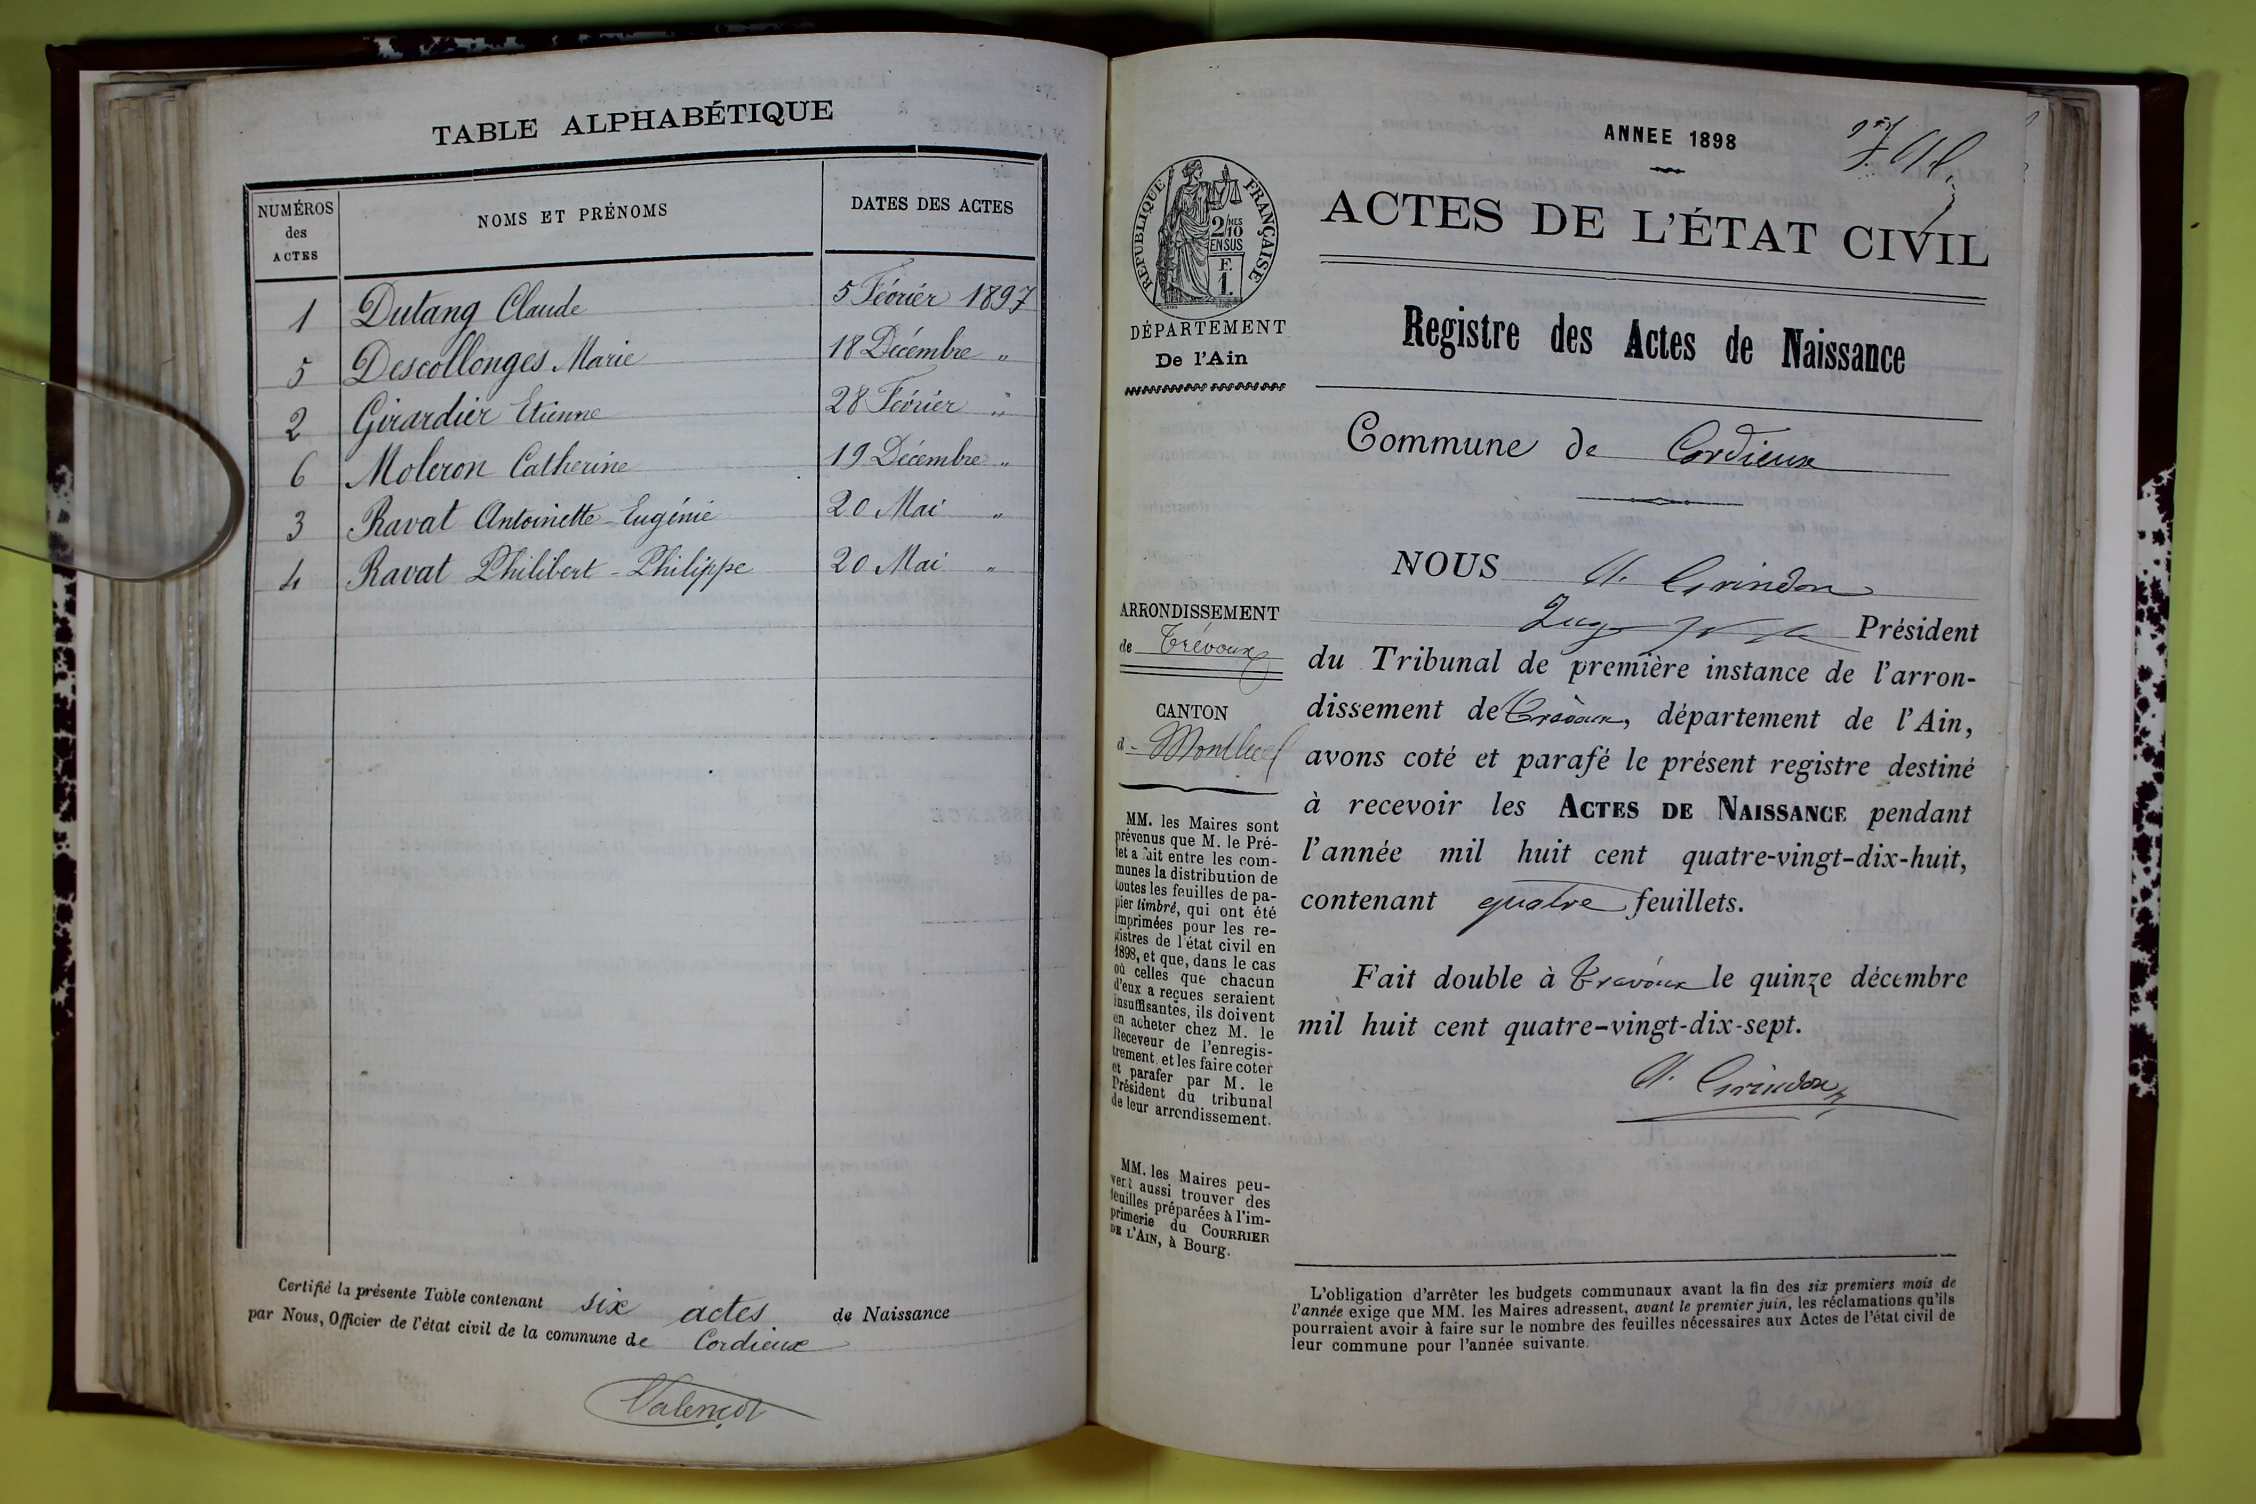 TABLE ALPHABÉTIQUE
NUMÉROS des ACTES
NOMS ET PRÉNOMS
DATES DES ACTES
1 Dutang Claude 5 Février 1897
5 Descollonges Marie 18 Décembre "
2 Girardier Etienne 28 Février "
6 Moleron Catherine 19 Décembre "
3 Ravat Antoinette-Eugénie 20 Mai "
4 Ravat Philibert-Philippe 20 Mai "
Certifié la présente Table contenant six actes de Naissance
par Nous, Officier de l'état civil de la commune de Cordieux
Valençot
ANNEE 1898
RÉPUBLIQUE FRANÇAISE
2/10 MES
EN SUS
F.
1.
DÉPARTEMENT
De l'Ain
ACTES DE L'ÉTAT CIVIL
Registre des Actes de Naissance
Commune de Cordieux
ARRONDISSEMENT
de Trévoux
CANTON
d- Montluel
MM. les Maires sont
prévenus que M. le Pré-
fet a fait entre les com-
munes la distribution de
toutes les feuilles de pa-
pier timbré, qui ont été
imprimées pour les re-
gistres de l'état civil en
1898, et que, dans le cas
où celles que chacun
d'eux a reçues seraient
insuffisantes, ils doivent
en acheter chez M. le
Receveur de l'enregis-
trement et les faire coter
et parafer par M. le
Président du tribunal
de leur arrondissement.
MM. les Maires peu-
vent aussi trouver des
feuilles préparées à l'im-
primerie du COURRIER
DE L'AIN, à Bourg.
NOUS A. Grindon
Juge Président
du Tribunal de première instance de l'arron-
dissement de Trévoux, département de l'Ain,
avons coté et parafé le présent registre destiné
à recevoir les ACTES DE NAISSANCE pendant
l'année mil huit cent quatre-vingt-dix-huit,
contenant quatre feuillets.
Fait double à Trévoux le quinze décembre
mil huit cent quatre-vingt-dix-sept.
A. Grindon
L'obligation d'arrêter les budgets communaux avant la fin des six premiers mois de
l'année exige que MM. les Maires adressent, avant le premier juin, les réclamations qu'ils
pourraient avoir à faire sur le nombre des feuilles nécessaires aux Actes de l'état civil de
leur commune pour l'année suivante.